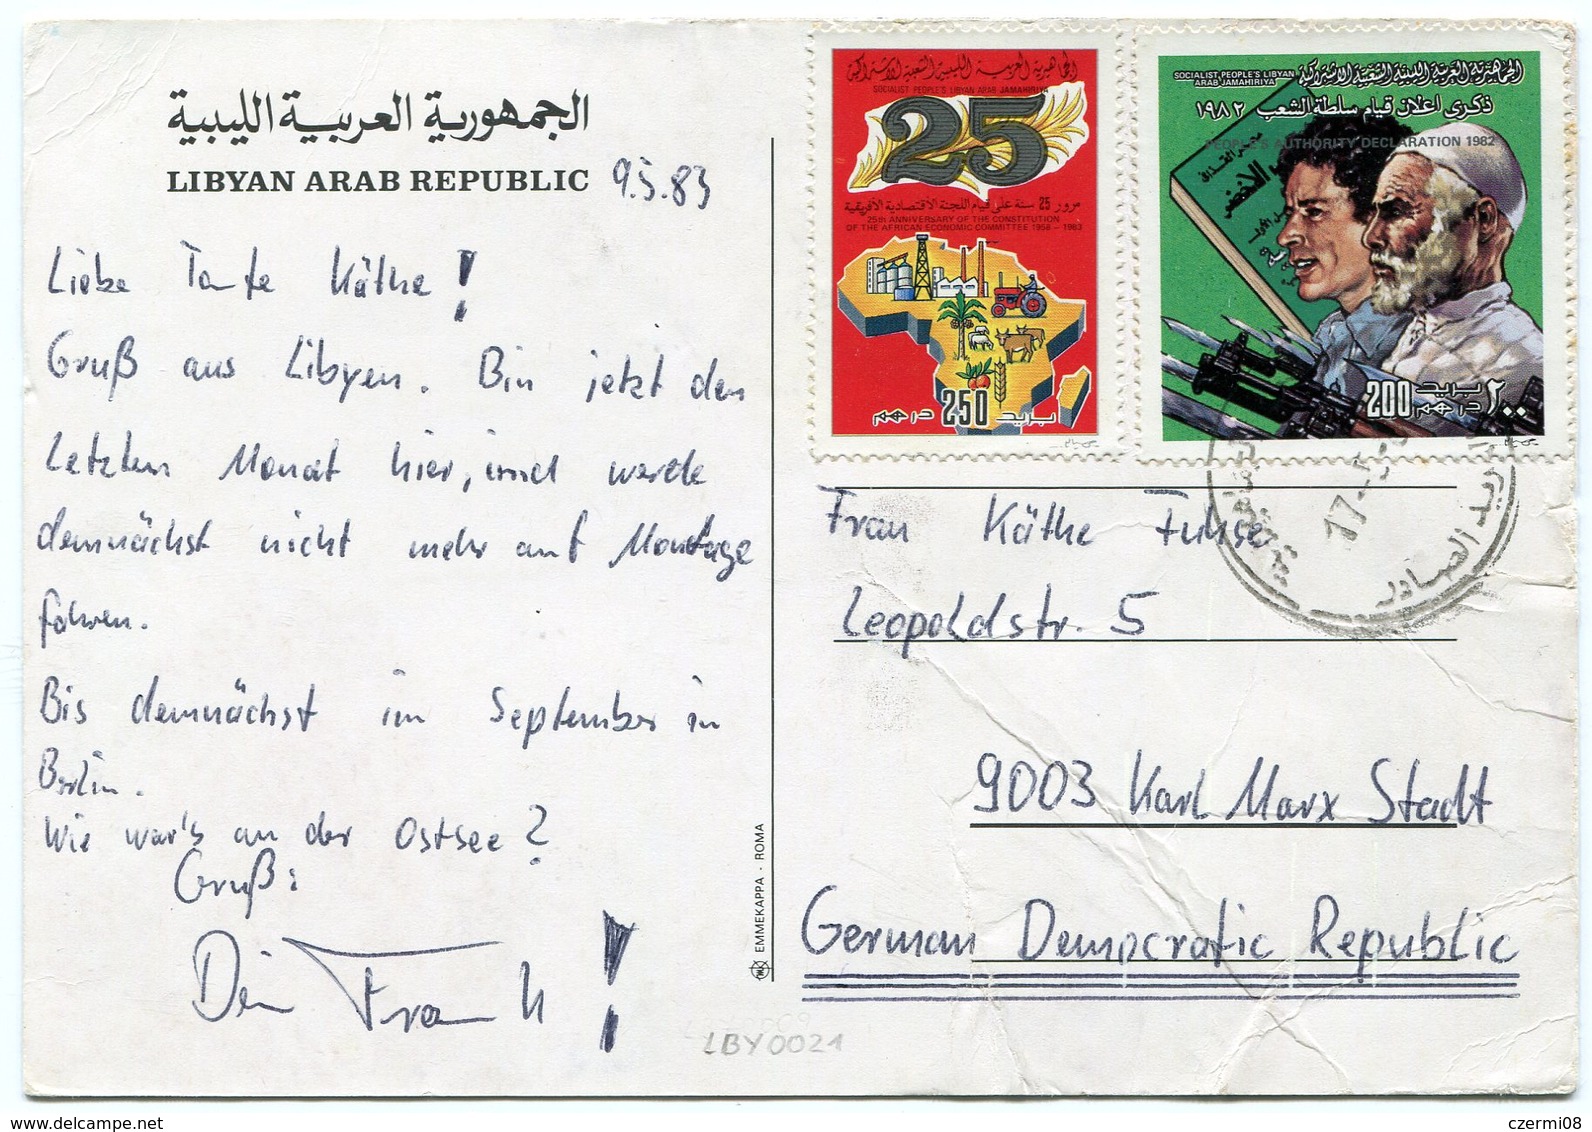 الجمهورية العربية الليبية
LIBYAN ARAB REPUBLIC
9.5.83
Liebe Tante Käthe!
Gruß aus Libyen. Bin jetzt den
letzten Monat hier, und werde
demnächst nicht mehr auf Montage
fahren.
Bis demnächst im September in
Berlin.
Wie war's an der Ostsee?
Gruß:
Dein Frank!
EMMEKAPPA - ROMA
LBY0021
الجماهيرية العربية الليبية الشعبية الاشتراكية
SOCIALIST PEOPLE'S LIBYAN ARAB JAMAHIRIYA
25
مرور 25 سنة على قيام اللجنة الاقتصادية الافريقية
25th ANNIVERSARY OF THE CONSTITUTION
OF THE AFRICAN ECONOMIC COMMITTEE 1958 - 1983
بريد 250 درهم
الجماهيرية العربية الليبية الشعبية الاشتراكية
SOCIALIST PEOPLE'S LIBYAN
ARAB JAMAHIRIYA
ذكرى اعلان قيام سلطة الشعب ١٩٨٢
PEOPLE'S AUTHORITY DECLARATION 1982
معمر القذافي
الأخضر
٢٠٠ بريد درهم 200
17-5-8
البريد الصادر
Frau Käthe Fuhse
Leopoldstr. 5
9003 Karl Marx Stadt
German Democratic Republic
www.delcampe.net
czermi08